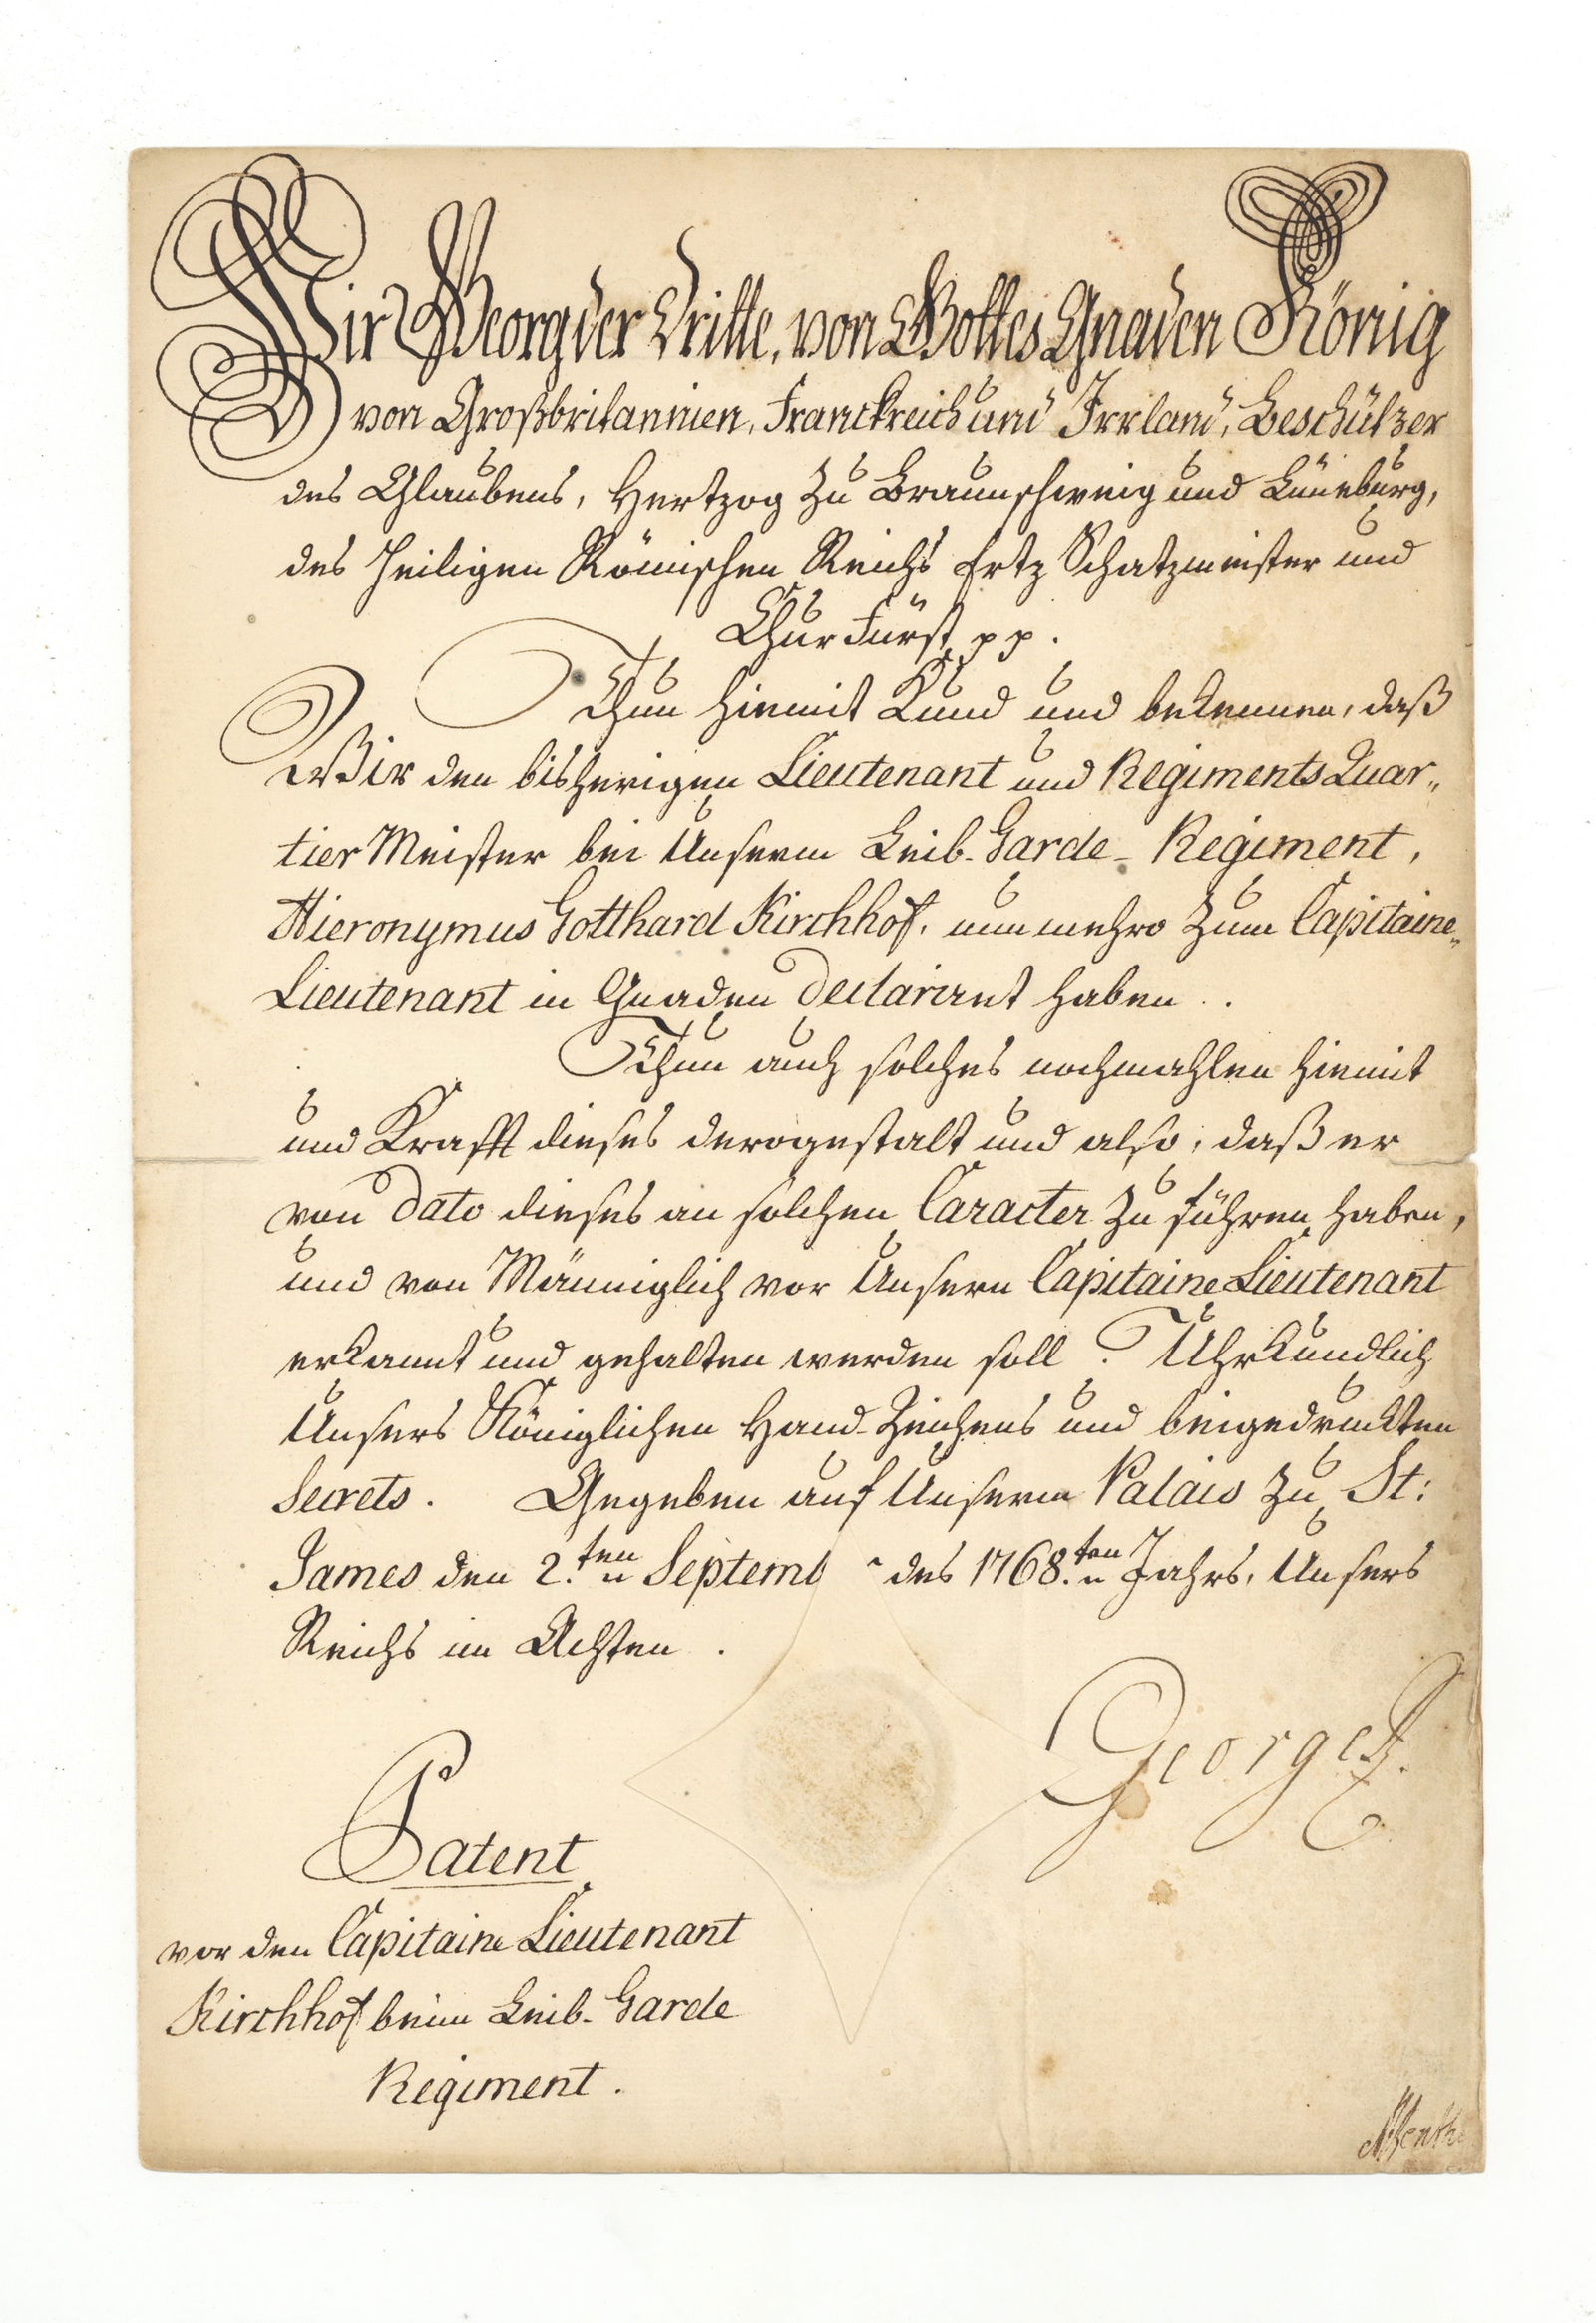 Wir Georg der Dritte, von Gottes Gnaden König
von Großbritannien, Franckreich und Irrland, Beschützer
des Glaubens, Hertzog zu Braunschweig und Lüneburg,
des Heiligen Römischen Reichs Ertz Schatzmeister und
Churfürst pp.
Thun hiemit Kund und bekennen, daß
Wir den bisherigen Lieutenant und Regiments Quar„
tier Meister bei Unserm Leib-Garde-Regiment,
Hieronymus Gotthard Kirchhof, nunmehro zum Capitaine„
Lieutenant in Gnaden declariret haben.
Thun auch solches nochmahlen hiemit
und Krafft dieses derogestalt und also, daß er
von dato dieses an solchen Caracter zu führen haben,
und von Männiglich vor Unsern Capitaine Lieutenant
erkannt und gehalten werden soll. Uhrkundlich
Unsers Königlichen Hand-Zeichens und beigedruckten
Secrets. Gegeben auf Unserm Palais zu St:
James den 2.ten Septemb des 1768.ten Jahrs, Unsers
Reichs im Achten.
George R.
Patent
vor den Capitaine Lieutenant
Kirchhof beim Leib-Garde
Regiment.